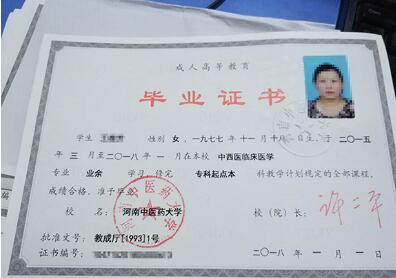 成人高等教育
毕业证书
学生 性别 女，一九七七年十一月十日生，于二〇一五
年三月至二〇一八年一月在本校 中西医临床医学
专业 业余 学习，修完 专科起点本科教学计划规定的全部课程，
成绩合格，准予毕业。
校 名：河南中医药大学 校（院）长：
批准文号：教成厅[1993]1号
证书编号：
二〇一八年一月一日